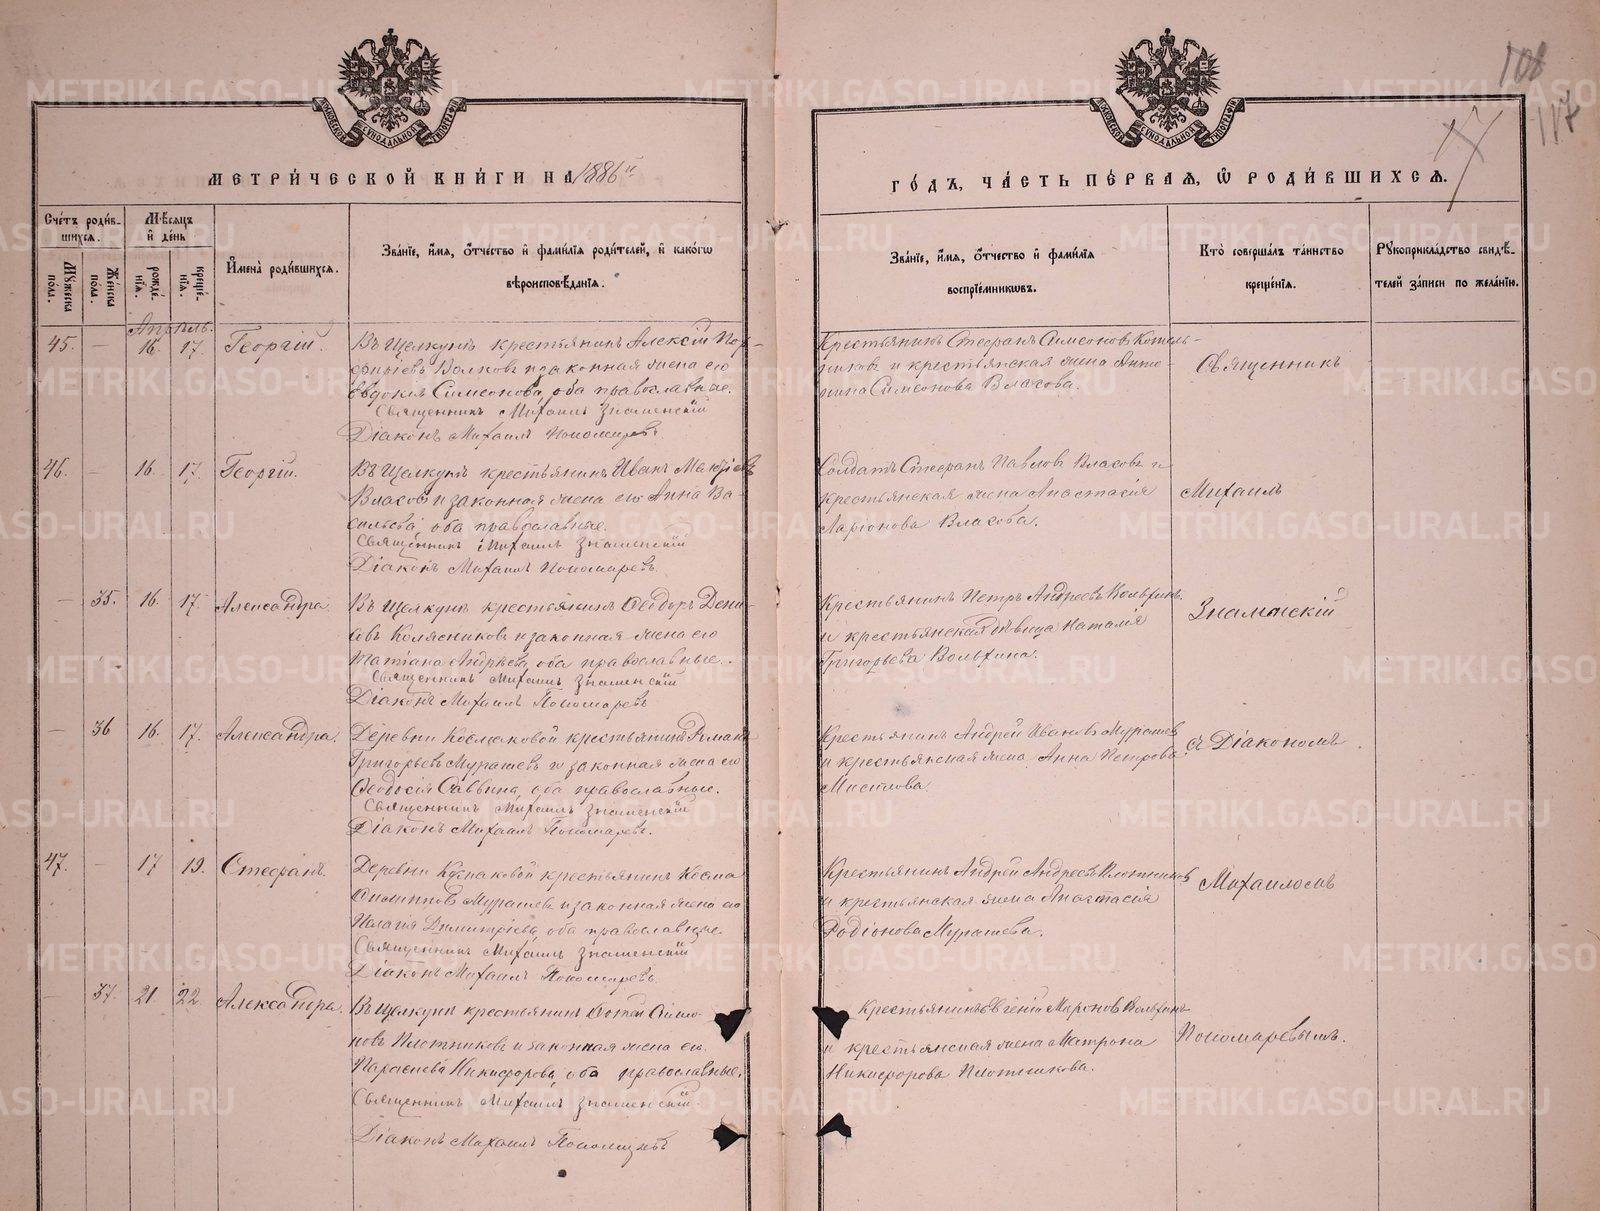 МОСКОВСКОЙ СУНОДАЛЬНОЙ ТИПОГРАФІИ
МОСКОВСКОЙ СУНОДАЛЬНОЙ ТИПОГРАФІИ
108
117
17
МЕТРИ́ЧЕСКОЙ КНИ́ГИ НА 1886й
ГО́ДЪ, ЧА́СТЬ ПЕ́РВАѦ, Ѿ РОДИ́ВШИХСѦ.
Сче́тъ роди́в-
шихсѧ.
Мѣсѧцъ
и҆ де́нь
И҆мена̀ роди́вшихсѧ.
Зва́нїе, и҆́мѧ, ѻ҆́тчество и҆ фами́лїѧ роди́телей, и҆ како́гѡ
вѣроисповѣ́данїѧ.
Зва́нїе, и҆́мѧ, ѻ҆́тчество и҆ фами́лїѧ
воспрїе́мникѡвъ.
Кто̀ соверша́лъ та́инство
креще́нїѧ.
Рꙋкоприкла́дство свидѣ́-
телей за́писи по жела́нїю.
Мꙋ́жеска
по́ла.
Же́нска
по́ла.
рожде́-
нїѧ.
креще́-
нїѧ.
Апрѣль.
45. — 16 17. Георгій.
Въ Щелкунѣ крестьянинъ Алексій Пор-
фирьевъ Волковъ и законная жена его
Евдокія Симеонова, оба православные.
Священникъ Михаилъ Знаменскій
Діаконъ Михаилъ Пономаревъ.
Крестьянинъ Стефанъ Симеоновъ Котель-
никовъ и крестьянская жена Анто-
нина Симеонова Власова.
Священникъ
46. — 16 17. Георгій.
Въ Щелкунѣ крестьянинъ Иванъ
Власовъ и законная жена его Анна Ва-
сильева, оба православные.
Священникъ Михаилъ Знаменскій
Діаконъ Михаилъ Пономаревъ
Солдатъ Стефанъ Павловъ Власовъ и
крестьянская жена Анастасія
Ларіонова Власова.
Михаилъ
— 35. 16. 17. Александра.
Въ Щелкунѣ крестьянинъ Ѳеодоръ Дени-
совъ Колясниковъ и законная жена его
Татіана Андреева, оба православные.
Священникъ Михаилъ Знаменскій
Діаконъ Михаилъ Пономаревъ
Крестьянинъ Петръ Андреевъ Вольхинъ
и крестьянская дѣвица Наталія
Григорьева Вольхина.
Знаменскій
— 36 16. 17. Александра.
Деревни Космаковой крестьянинъ Романъ
Григорьевъ Мурашевъ и законная жена его
Ѳеодосія Саввина, оба православные.
Священникъ Михаилъ Знаменскій
Діаконъ Михаилъ Пономаревъ.
Крестьянинъ Андрей Ивановъ Мурашев
и крестьянская жена Анна Петрова
съ Діакономъ
47. — 17 19. Стефанъ.
Деревни Космаковой крестьянинъ Косма
Мурашевъ и законная жена его
Пелагія Димитріева, оба православные.
Священникъ Михаилъ Знаменскій
Діаконъ Михаилъ Пономаревъ
Крестьянинъ Андрей Андреевъ Плотников
и крестьянская жена Анастасія
Родіонова Мурашева.
Михаиломъ
— 37. 21. 22 Александра.
Въ Щелкунѣ крестьянинъ Фотій Симо-
новъ Плотниковъ и законная жена его
Параскева Никифорова, оба православные.
Священникъ Михаилъ Знаменскій.
Діаконъ Михаилъ Пономаревъ
Крестьянинъ Евгеній Мироновъ Вольхинъ
и крестьянская жена Матрона
Никифорова Плотникова.
Пономаревымъ.
METRIKI.GASO-URAL.RU